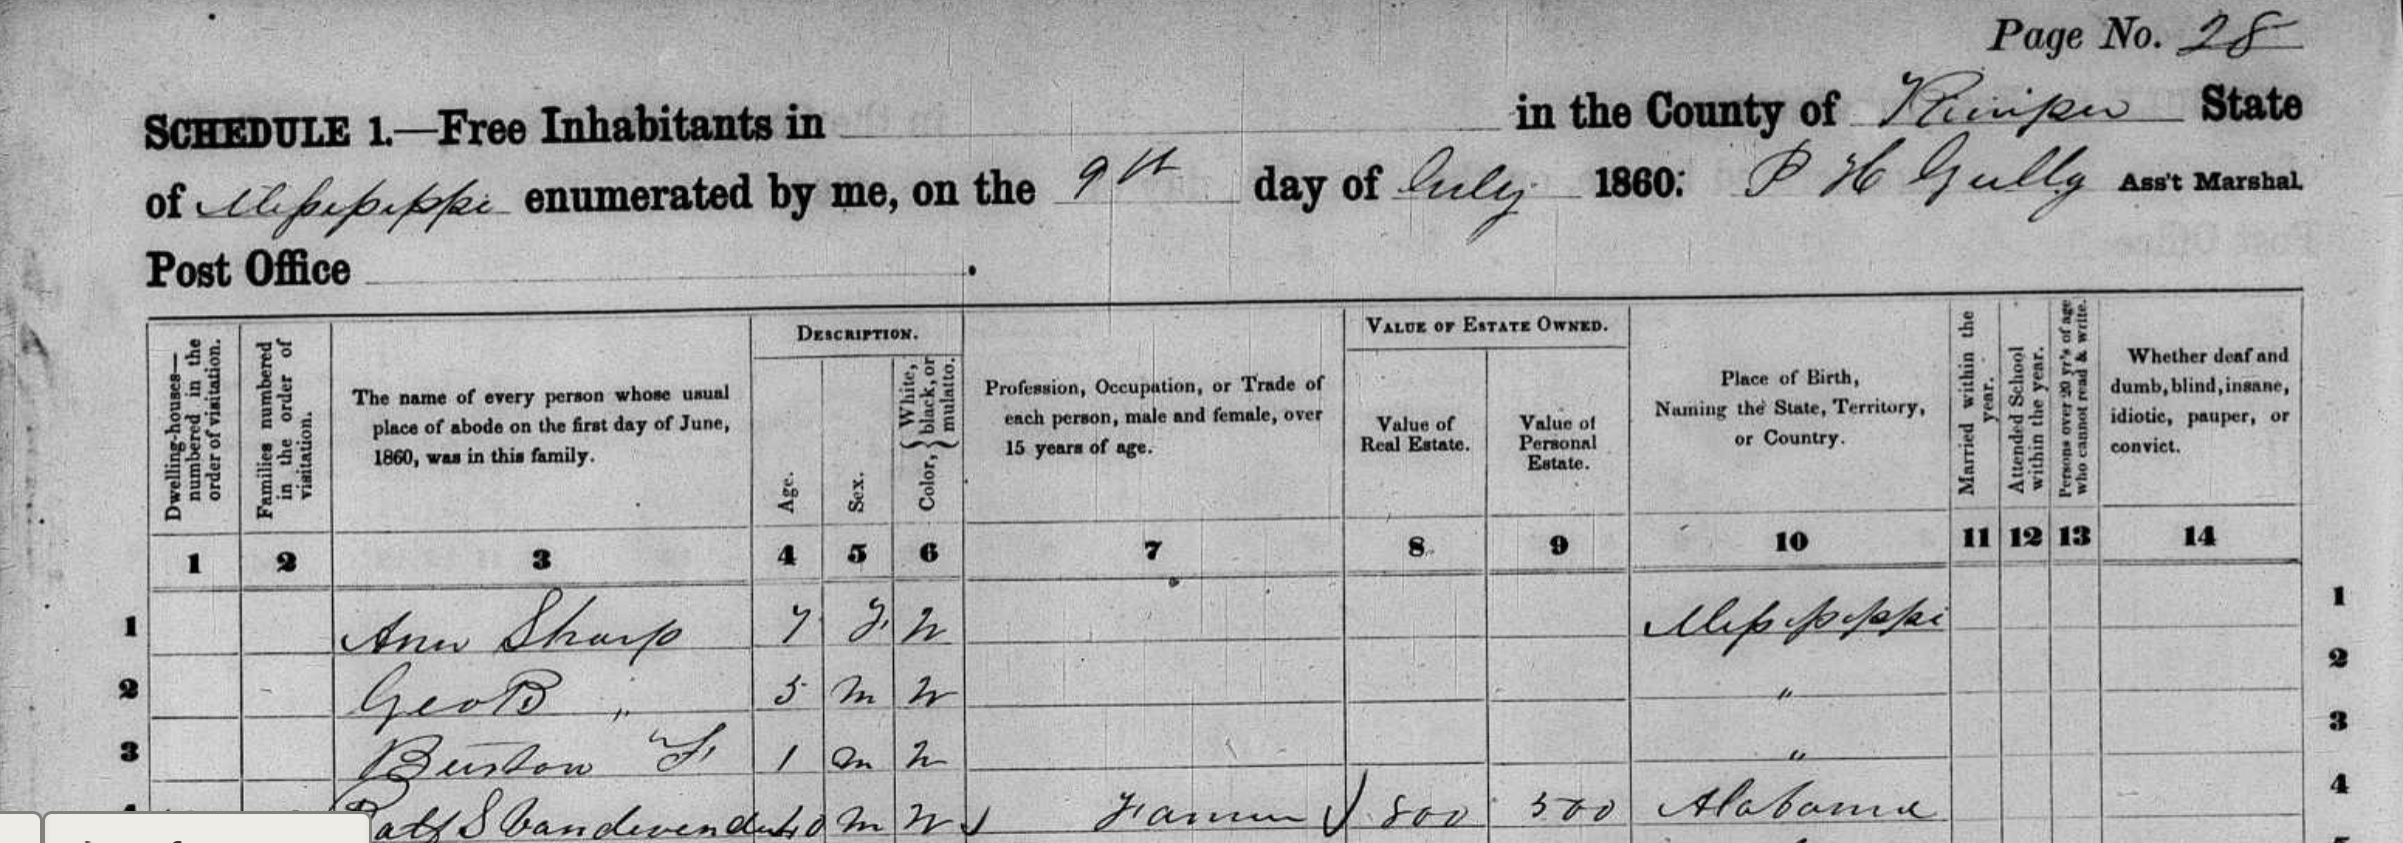 Page No. 28
SCHEDULE 1.—Free Inhabitants in in the County of Kemper State
of Mississippi enumerated by me, on the 9th day of July 1860. P H Gully Ass't Marshal.
Post Office .
Dwelling-houses—numbered in the order of visitation.
Families numbered in the order of visitation.
The name of every person whose usual
place of abode on the first day of June,
1860, was in this family.
DESCRIPTION.
Age.
Sex.
Color, { White, black, or mulatto.
Profession, Occupation, or Trade of
each person, male and female, over
15 years of age.
VALUE OF ESTATE OWNED.
Value of
Real Estate.
Value of
Personal
Estate.
Place of Birth,
Naming the State, Territory,
or Country.
Married within the year.
Attended School within the year.
Persons over 20 yr's of age who cannot read & write.
Whether deaf and
dumb, blind, insane,
idiotic, pauper, or
convict.
1 2 3 4 5 6 7 8 9 10 11 12 13 14
1 Ann Sharp 7 F W Mississippi 1
2 Geo B " 5 m W " 2
3 Burton " F 1 m W " 3
S Vandevender 40 m W Farmer 800 500 Alabama 4